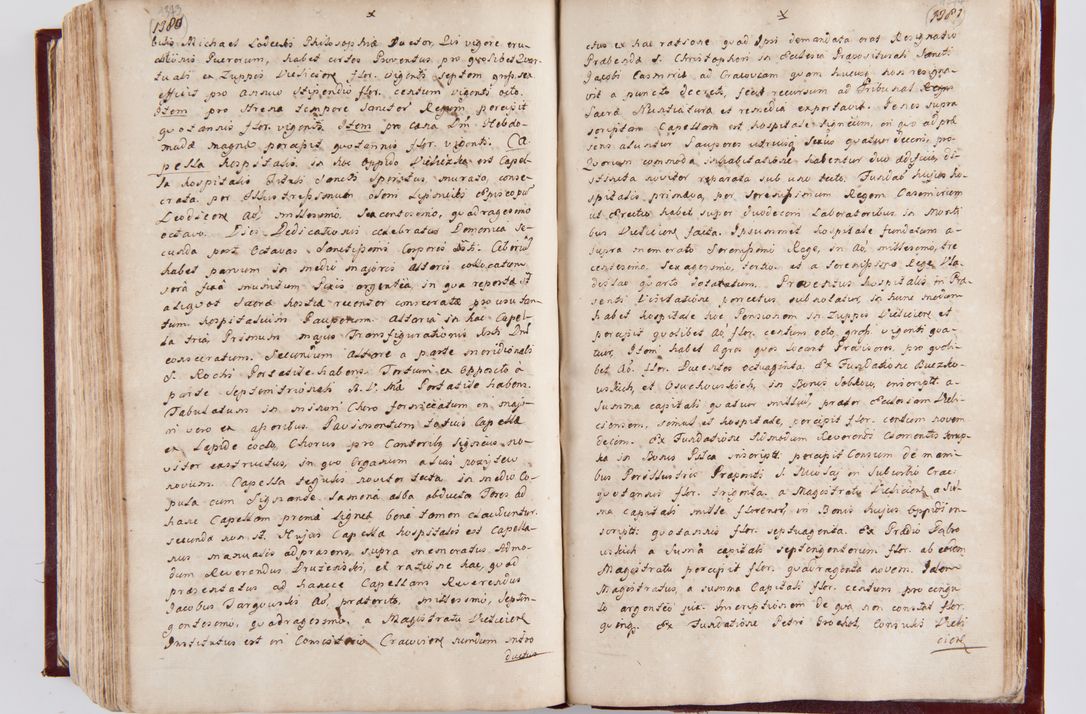 (1380)
bilis Michael Lodecki Philosophiæ Doctor, Qui vigore eru-
ditionis Puerorum, habet certos Proventus pro quolibet Quar-
tuali ex Zuppis Velicien flor. viginti septem gros. sex
efficit pro Annuo Stipendio flor. centum viginti octo.
Item pro Strena tempore Sanctor Regum percipit
quotannis flor. viginti Item pro Cæna Dni Hebdo-
madæ magnæ percipit quotannis flor. viginti. Ca-
pella hospitalis. in hoc Oppido Velicien est Capel-
la hospitalis Tituli Sancti Spiritus, murata, conse-
crata per Illustrissimum Episcopum
Laodicen Ao millesimo Sexcentesimo, quadragesimo
octavo. Dies Dedicationis celebratur Dominica se-
cunda post Octavas Sanctissimi Corporis Xsti. Ciborium
habet parvum in medio majoris Altaris collocatum,
serâ fixâ munitum Pixis argentea, in qua reposita st
aliquot Sacræ hostiæ recenter consecratæ pro usu tan-
tum hospitalium Pauperum. Altaria in hac Capel-
la tria, Primum majus Transfigurationis Xsti Dni
consecratum. Secundum Altare a parte meridionali
S. Rochi Portatile habens. Tertium ex opposito a
parte Septemtrionali B.V. Mæ Portatile habens.
Tabulatum in minori Choro fornicatum in majo-
ri vero ex asseribus. Pavimentum totius Capellæ
ex lapide cocto, Chorus pro Cantoribus ligneus no-
viter exstructus, in quo Organum
novum. Capella tegulis noviter tecta in medio Cu-
pula cum Signando. lamina alba obducta Fores ad
hanc Capellam primæ ligneæ bene tamen clauduntur.
secunda non st. Hujus Capellæ hospitalis est Capella-
nus manualis ad præsens, supra memoratus Admo-
dum Reverendus Druzeński, ex ratione hac, quod
præsentatus ad hancce Capellam Reverendus
Jacobus Targowski Ao præterito, millesimo, Septin-
gentesimo, quadragesimo, a Magistratu Velicien
Institutus est in Consistorio Cracovien nundum intro
ductus
(1381)
ctus ex hac ratione quod Ipsi demandata erat Resignatio
Præbendæ S. Christophori in Ecclesia Præpositurali Sancti
Jacobi Casimiriæ ad Cracoviam quam hucusq non resigna-
vit a puncto Decreti, fecit recursum ad Tribunal
Sacræ Nuntiaturæ et remedia exportavit. Penes supra
scriptam Capellam est hospitale ligneum, in quo ad præ
sens aluntur Pauperes utriusq Sexûs quatuordecim, pro
Quorum commoda inhabitatione habentur duo ædificia, di-
stincta noviter reparata sub uno tecto. Fundatio hujus ho-
spitalis primæva, per Serenissimum Regem Casimirum
ut Erectio habet super duodecim Laboratoribus in Monti
bus Velicien facta. Ipsummet hospitale fundatum a-
supra memorato Serenissimo Rege, in Ao millesimo, tre
centesimo, Sexagesimo, tertio et a Serenissimo Rege Vla-
dislao quarto dotatum. Proventus hospitalis in Præ-
senti Visitatione percetus subnotatur, in hunc modum
habet hospitale hoc Pensionem in Zuppis Velicien et
percipit quolibet Ao flor. centum octo, grosi viginti qua-
tuor, Item habet Agros quos locant Provisores pro quoli-
bet Ao flor. Ducentos octuaginta. Ex Fundatione Buczko-
wskich et Osuchowskich, in Bonis Sobkow, inscripti a-
summa capitali quatuor milliu, præter Ecclesiam Veli-
ciensem, simul et hospitale, percipit flor. centum novem
decem. Ex Fundatione Admodum Reverendi Clementis
in Bonis inscripti percipit Censum de mani-
bus Perillustris Præpositi S. Nicolai in Suburbio Crac:
quotannis flor. triginta. a Magistratu Velicien a Sum
ma capitali mille florenor, in Bonis hujus Oppidi in-
scripti quotannis flor. septuaginta. Ex Prædio
a Suma capitali septingentorum flor. ab eodem
Magistratu percipit flor. quadraginta novem. Idem
Magistratus, a summa Capitali flor. centum pro cingu
lo argenteo Inscriptionem de qua non constat flor.
quinq. Ex Fundatione Petri Grochot, Consulis Veli
cien